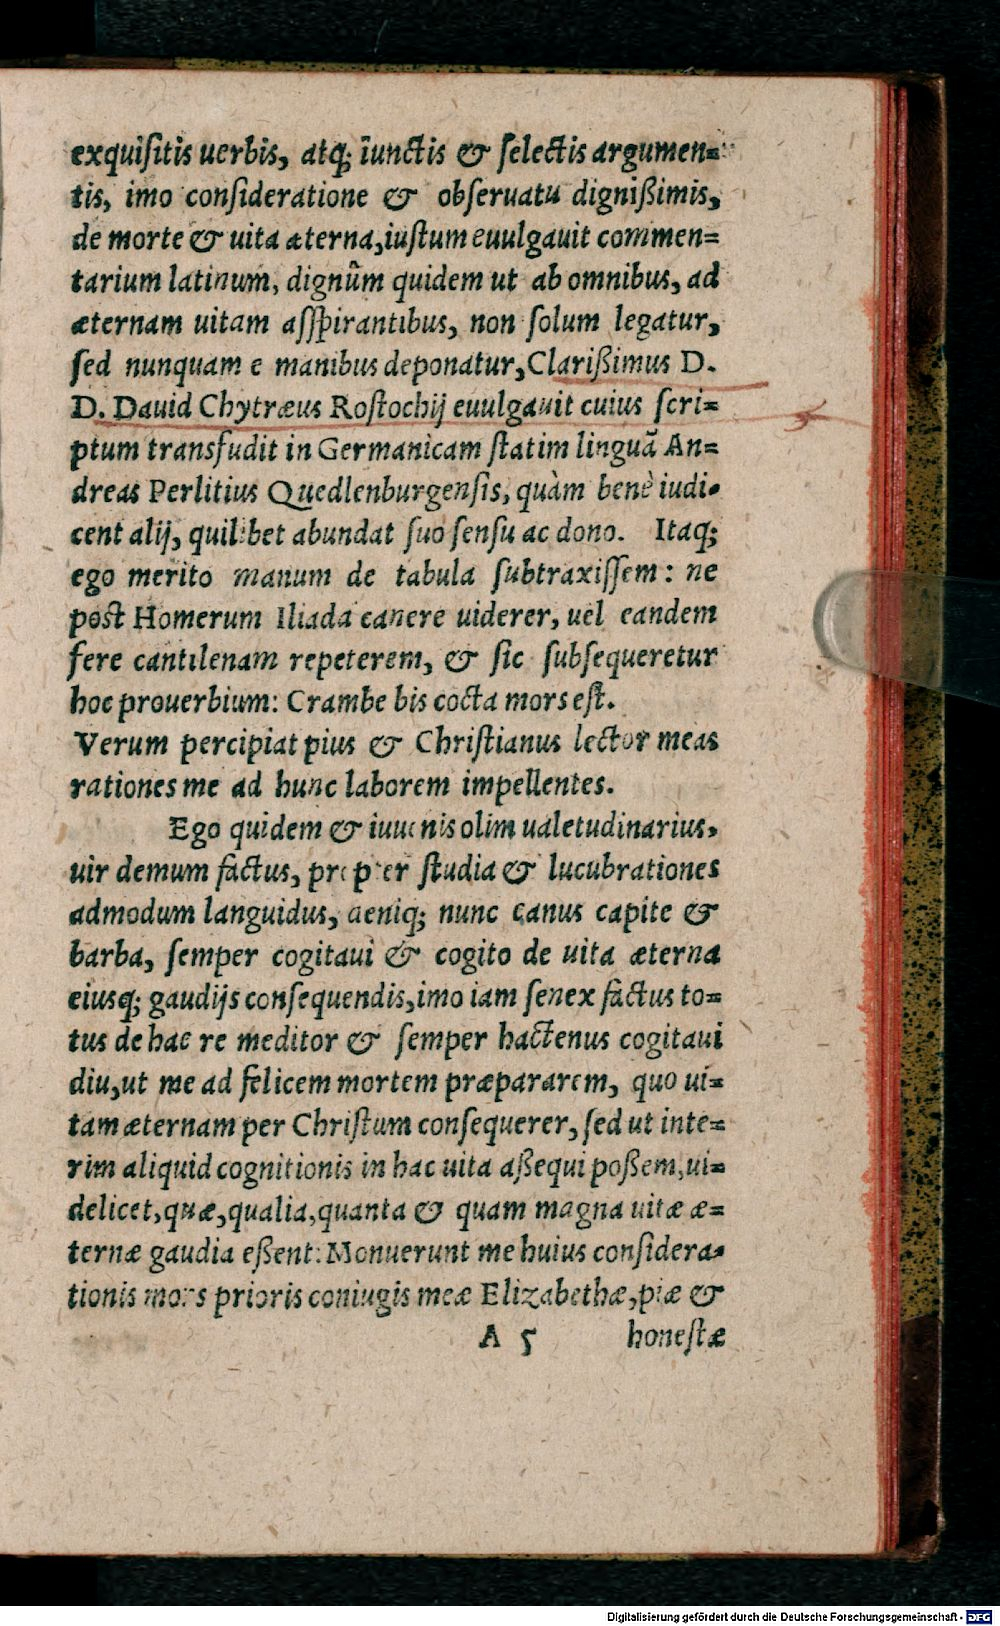 exquiſitis uerbis, atq; iunctis & ſelectis argumen=
tis, imo conſideratione & obſeruatu dignißimis,
de morte & uita æterna, iuſtum euulgauit commen=
tarium latinum, dignũm quidem ut ab omnibus, ad
æternam uitam aſſpirantibus, non ſolum legatur,
ſed nunquam e manibus deponatur, Clarißimus D.
D. Dauid Chytræus Roſtochij euulgauit cuius ſcri=
ptum transfudit in Germanicam ſtatim linguã An=
dreas Perlitius Quedlenburgenſis, quàm benè iudi=
cent alij, quilibet abundat ſuo ſenſu ac dono. Itaq;
ego merito manum de tabula ſubtraxiſſem: ne
post Homerum Iliada canere uiderer, uel eandem
fere cantilenam repeterem, & ſic ſubſequeretur
hoc prouerbium: Crambe bis cocta mors eſt.
Verum percipiat pius & Chriſtianus lector meas
rationes me ad hunc laborem impellentes.
Ego quidem & iuuenis olim ualetudinarius,
uir demum factus, propter ſtudia & lucubrationes
admodum languidus, deniq; nunc canus capite &
barba, ſemper cogitaui & cogito de uita æterna
eiusq; gaudijs conſequendis, imo iam ſenex factus to=
tus de hac re meditor & ſemper hactenus cogitaui
diu, ut me ad felicem mortem præpararem, quo ui=
tam æternam per Chriſtum conſequerer, ſed ut inte=
rim aliquid cognitionis in hac uita aßequi poßem, ui=
delicet, quæ, qualia, quanta & quam magna uitæ æ=
ternæ gaudia eßent: Monuerunt me huius conſidera=
tionis mors prioris coniugis meæ Elizabethæ, piæ &
A 5 honeſtæ
Digitalisierung gefördert durch die Deutsche Forschungsgemeinschaft - DFG